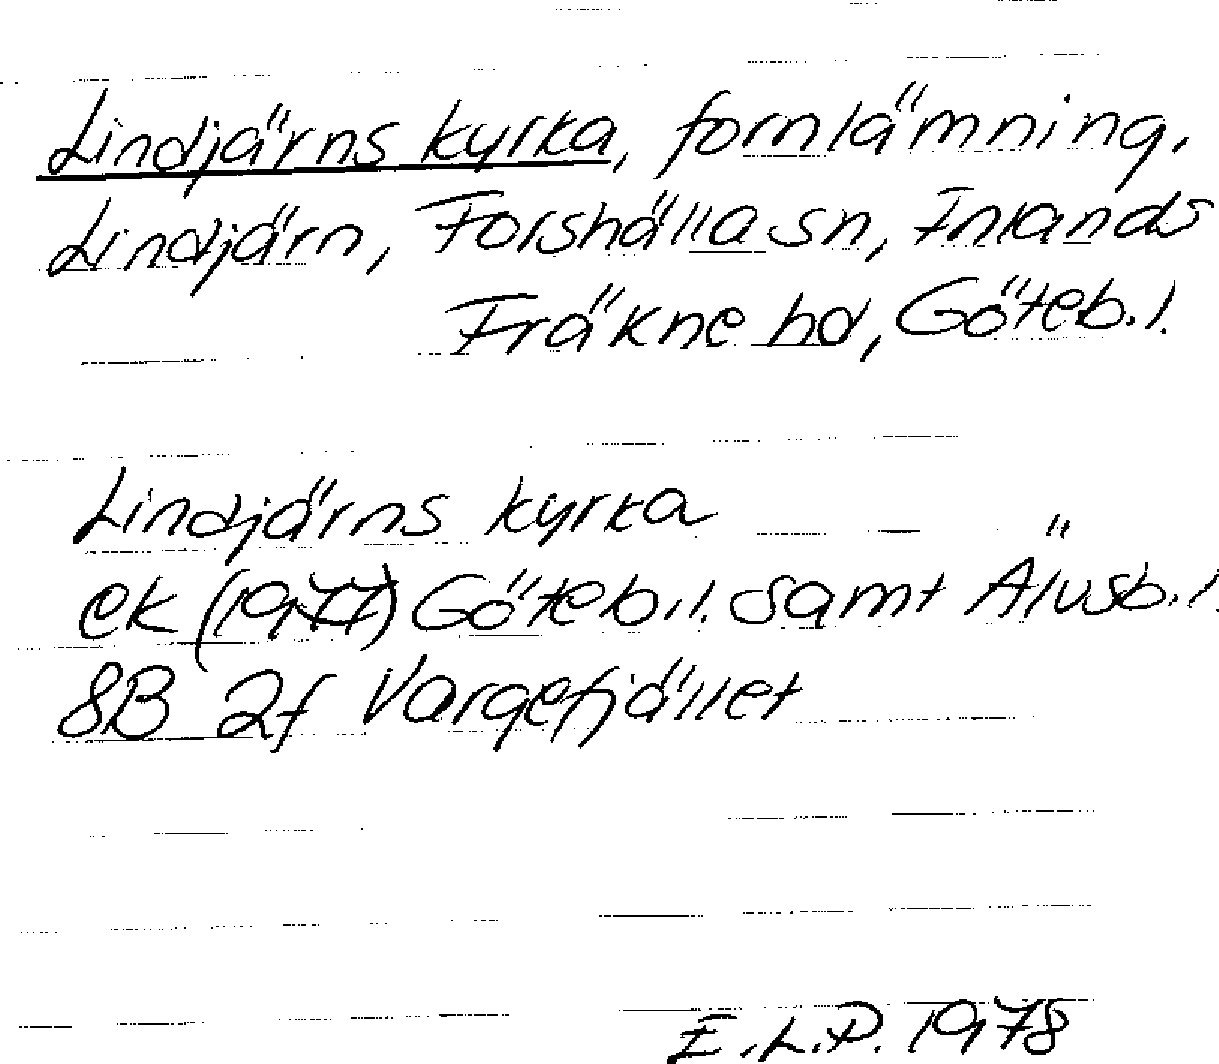 Lindjärns kyrka, fornlämning,
Lindjärn, Forshälla sn, Inlands
Fräkne hd, Göteb.l.
Lindjärns kyrka
ek (1977) Göteb.l. samt Älvsb.l.
8B 2f Vargefjället
E.L.P. 1978